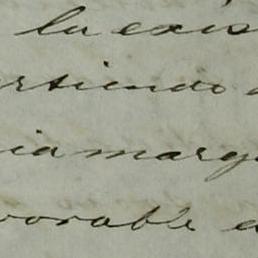 la exis
rtiendo
ia marg
vorable a